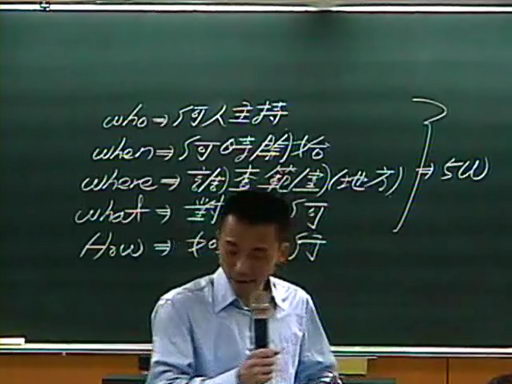 who⇒何人主持
when⇒何時開始
where⇒調查範圍(地方) ⇒5W
what⇒對 何
How⇒如 行